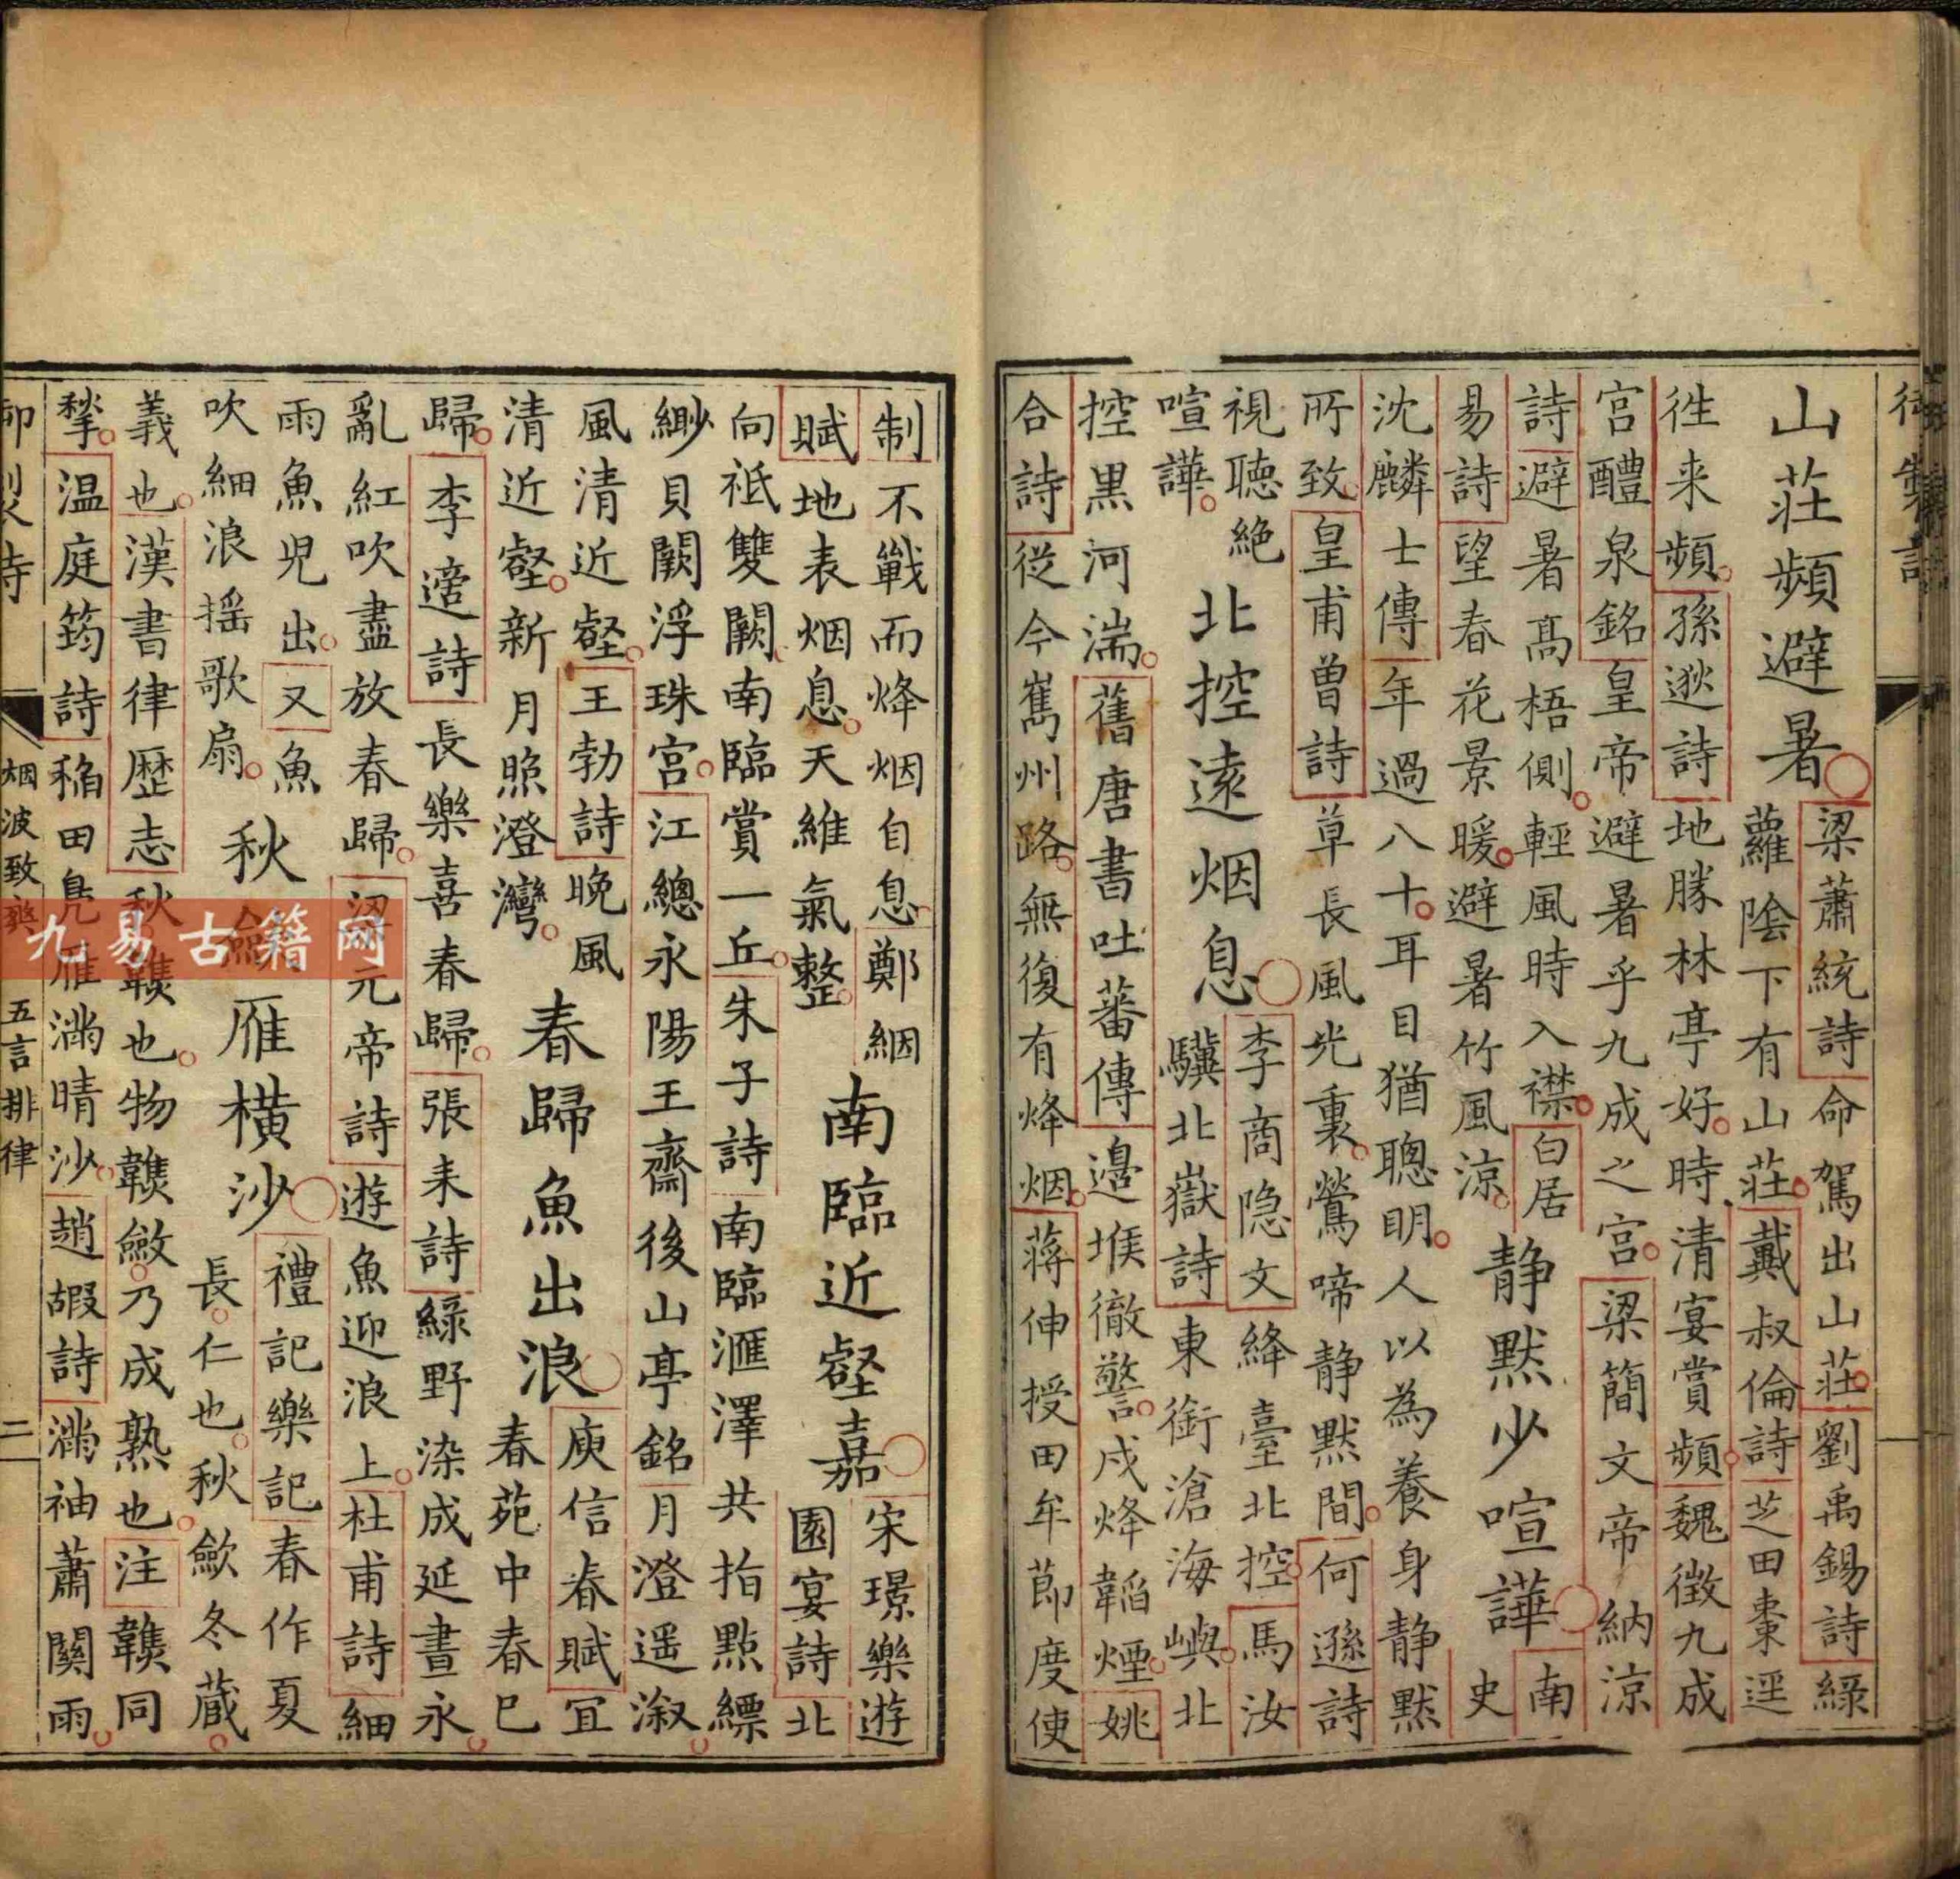 御製詩
山莊頻避暑
梁蕭統詩命駕出山莊劉禹錫詩綠
蘿陰下有山莊戴叔倫詩芝田棗逕
徃来頻孫逖詩地勝林亭好時清宴賞頻魏徵九成
宮醴泉銘皇帝避暑乎九成之宮梁簡文帝納涼
詩避暑高梧側輕風時入襟白居
易詩望春花景暖避暑竹風涼
静默少喧譁
南
史
沈麟士傳年過八十耳目猶聰明人以為養身静默
所致皇甫曾詩草長風光裏鶯啼静默間何遜詩
視聴絶
喧譁
北控遠烟息
李商隐文絳臺北控馬汝
驥北嶽詩東銜滄海嶼北
控黒河湍舊唐書吐蕃傳邉堠徹警戍烽韜煙姚
合詩從今巂州路無復有烽烟蔣伸授田牟節度使
制不戰而烽烟自息鄭絪
賦地表烟息天維氣整
南臨近壑嘉
宋璟樂遊
園宴詩北
向祗雙闕南臨賞一丘朱子詩南臨滙澤共指點縹
緲貝闕浮珠宮江總永陽王齋後山亭銘月澄遥溆
風清近壑王勃詩晚風
清近壑新月照澄灣
春歸魚出浪
庾信春賦宜
春苑中春已
歸李適詩長樂喜春歸張耒詩緑野染成延晝永
亂紅吹盡放春歸梁元帝詩遊魚迎浪上杜甫詩細
雨魚兒出又魚
吹細浪摇歌扇
秋斂雁横沙
禮記樂記春作夏
長仁也秋歛冬藏
義也漢書律歴志秋也物斂乃成熟也注同
揫温庭筠詩稻田凫雁满晴沙趙嘏詩满袖蕭關雨
御製詩 烟波致爽 五言排律 二
九易古籍网